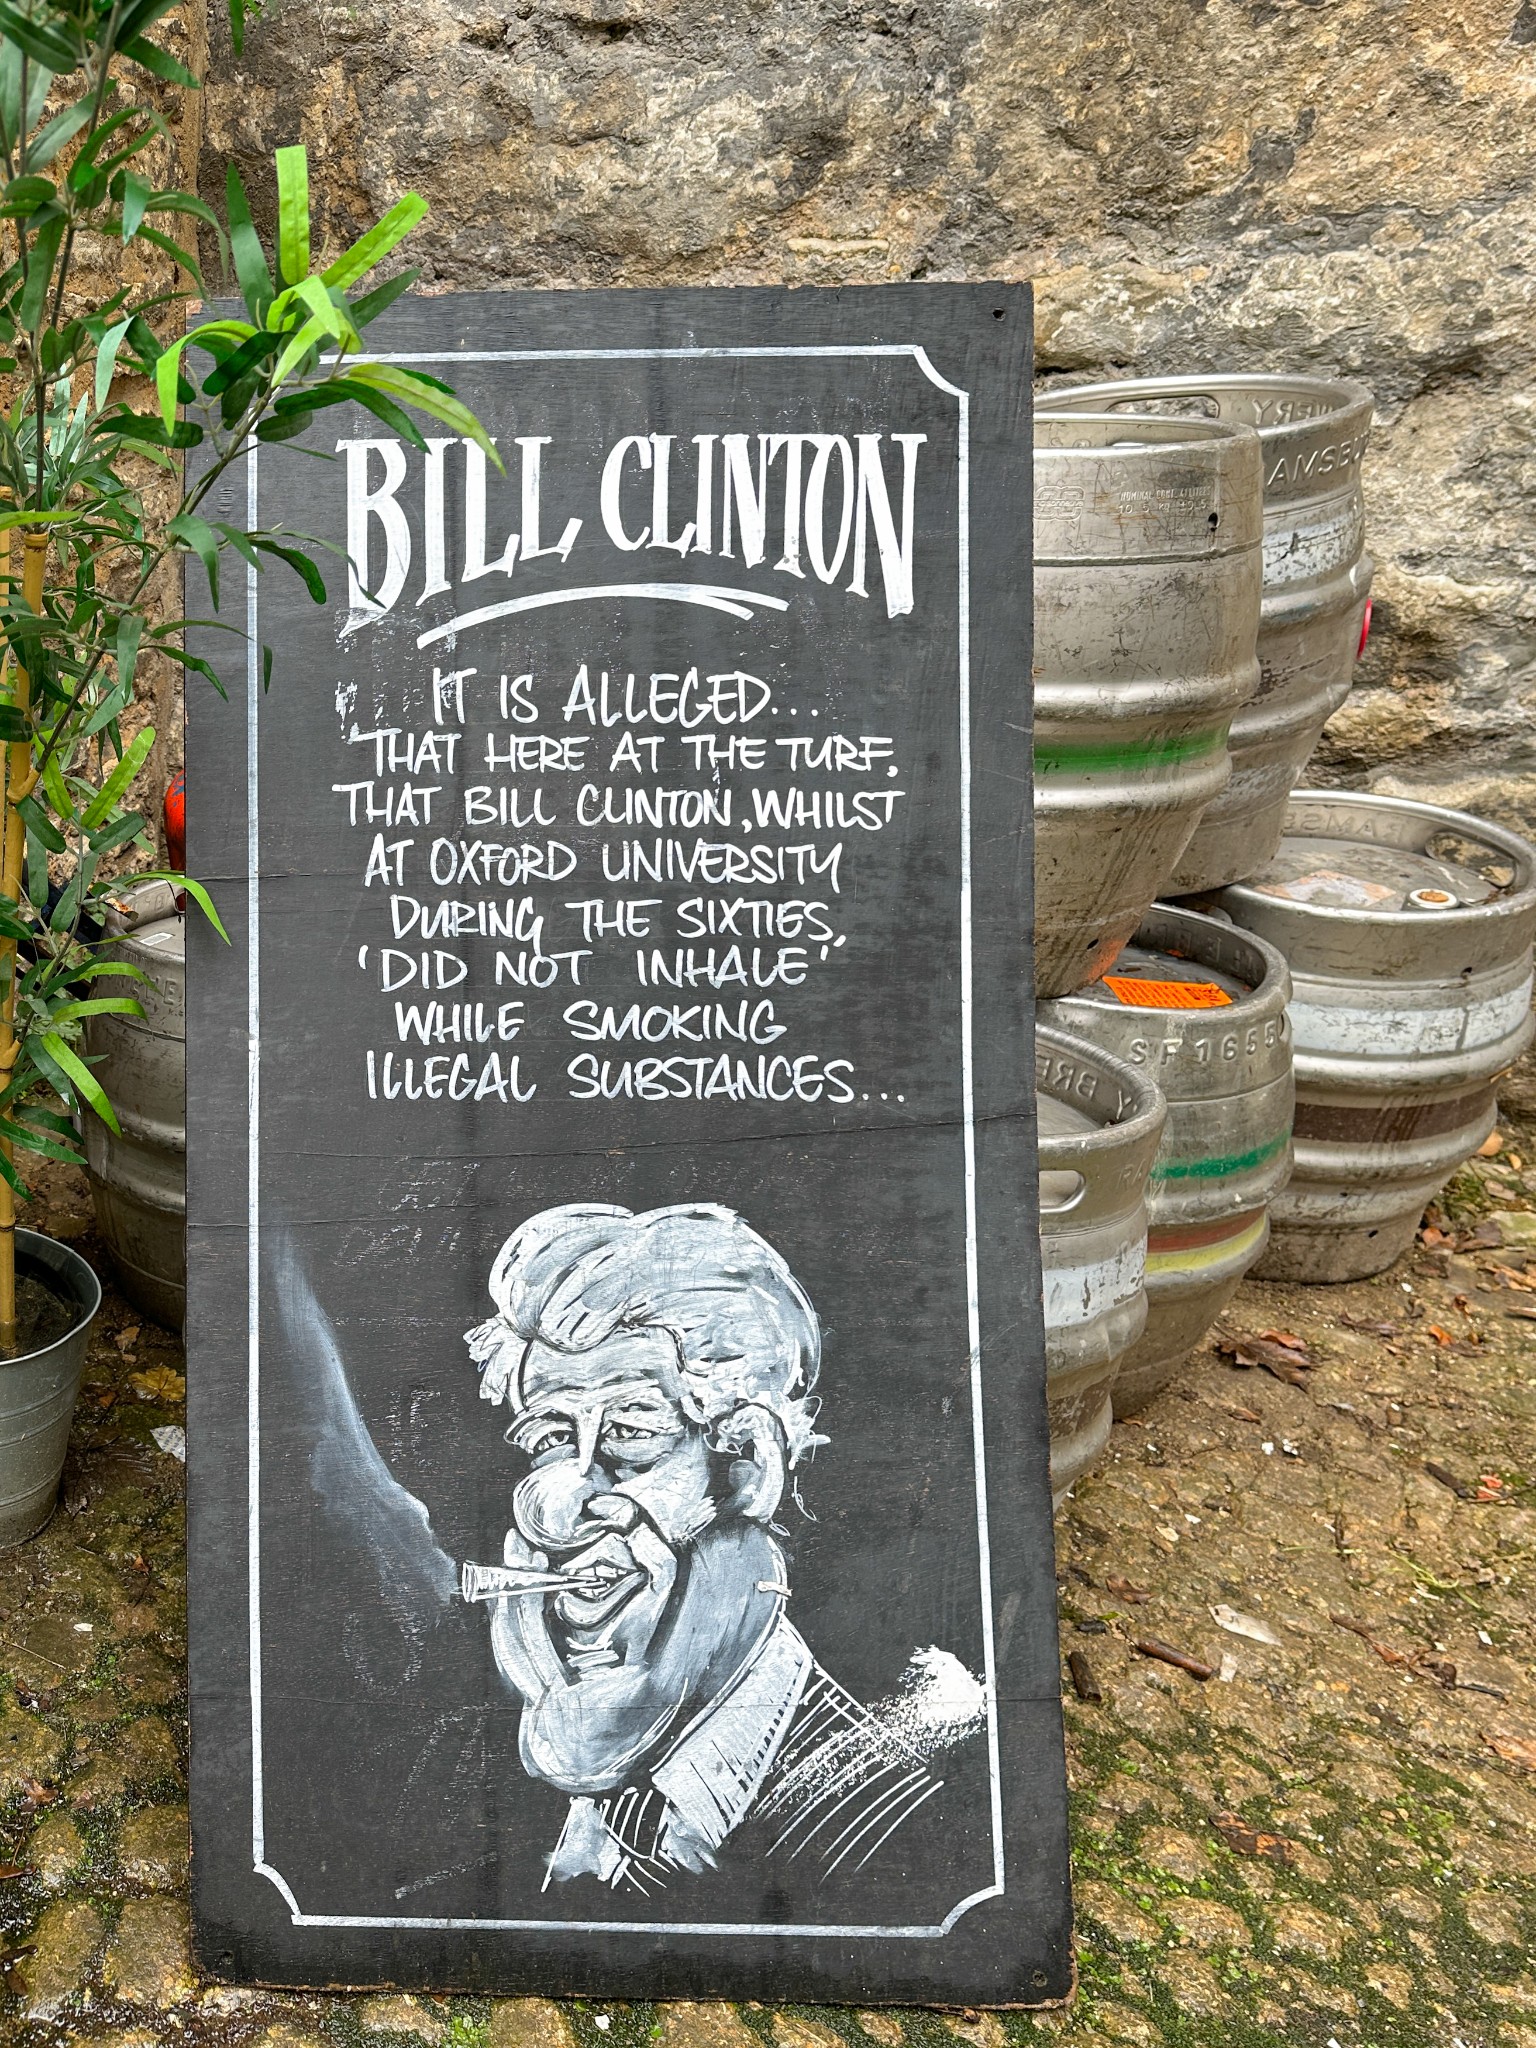 BILL CLINTON
IT IS ALLEGED...
THAT HERE AT THE TURF,
THAT BILL CLINTON, WHILST
AT OXFORD UNIVERSITY
DURING THE SIXTIES,
'DID NOT INHALE'
WHILE SMOKING
ILLEGAL SUBSTANCES...
SF1655